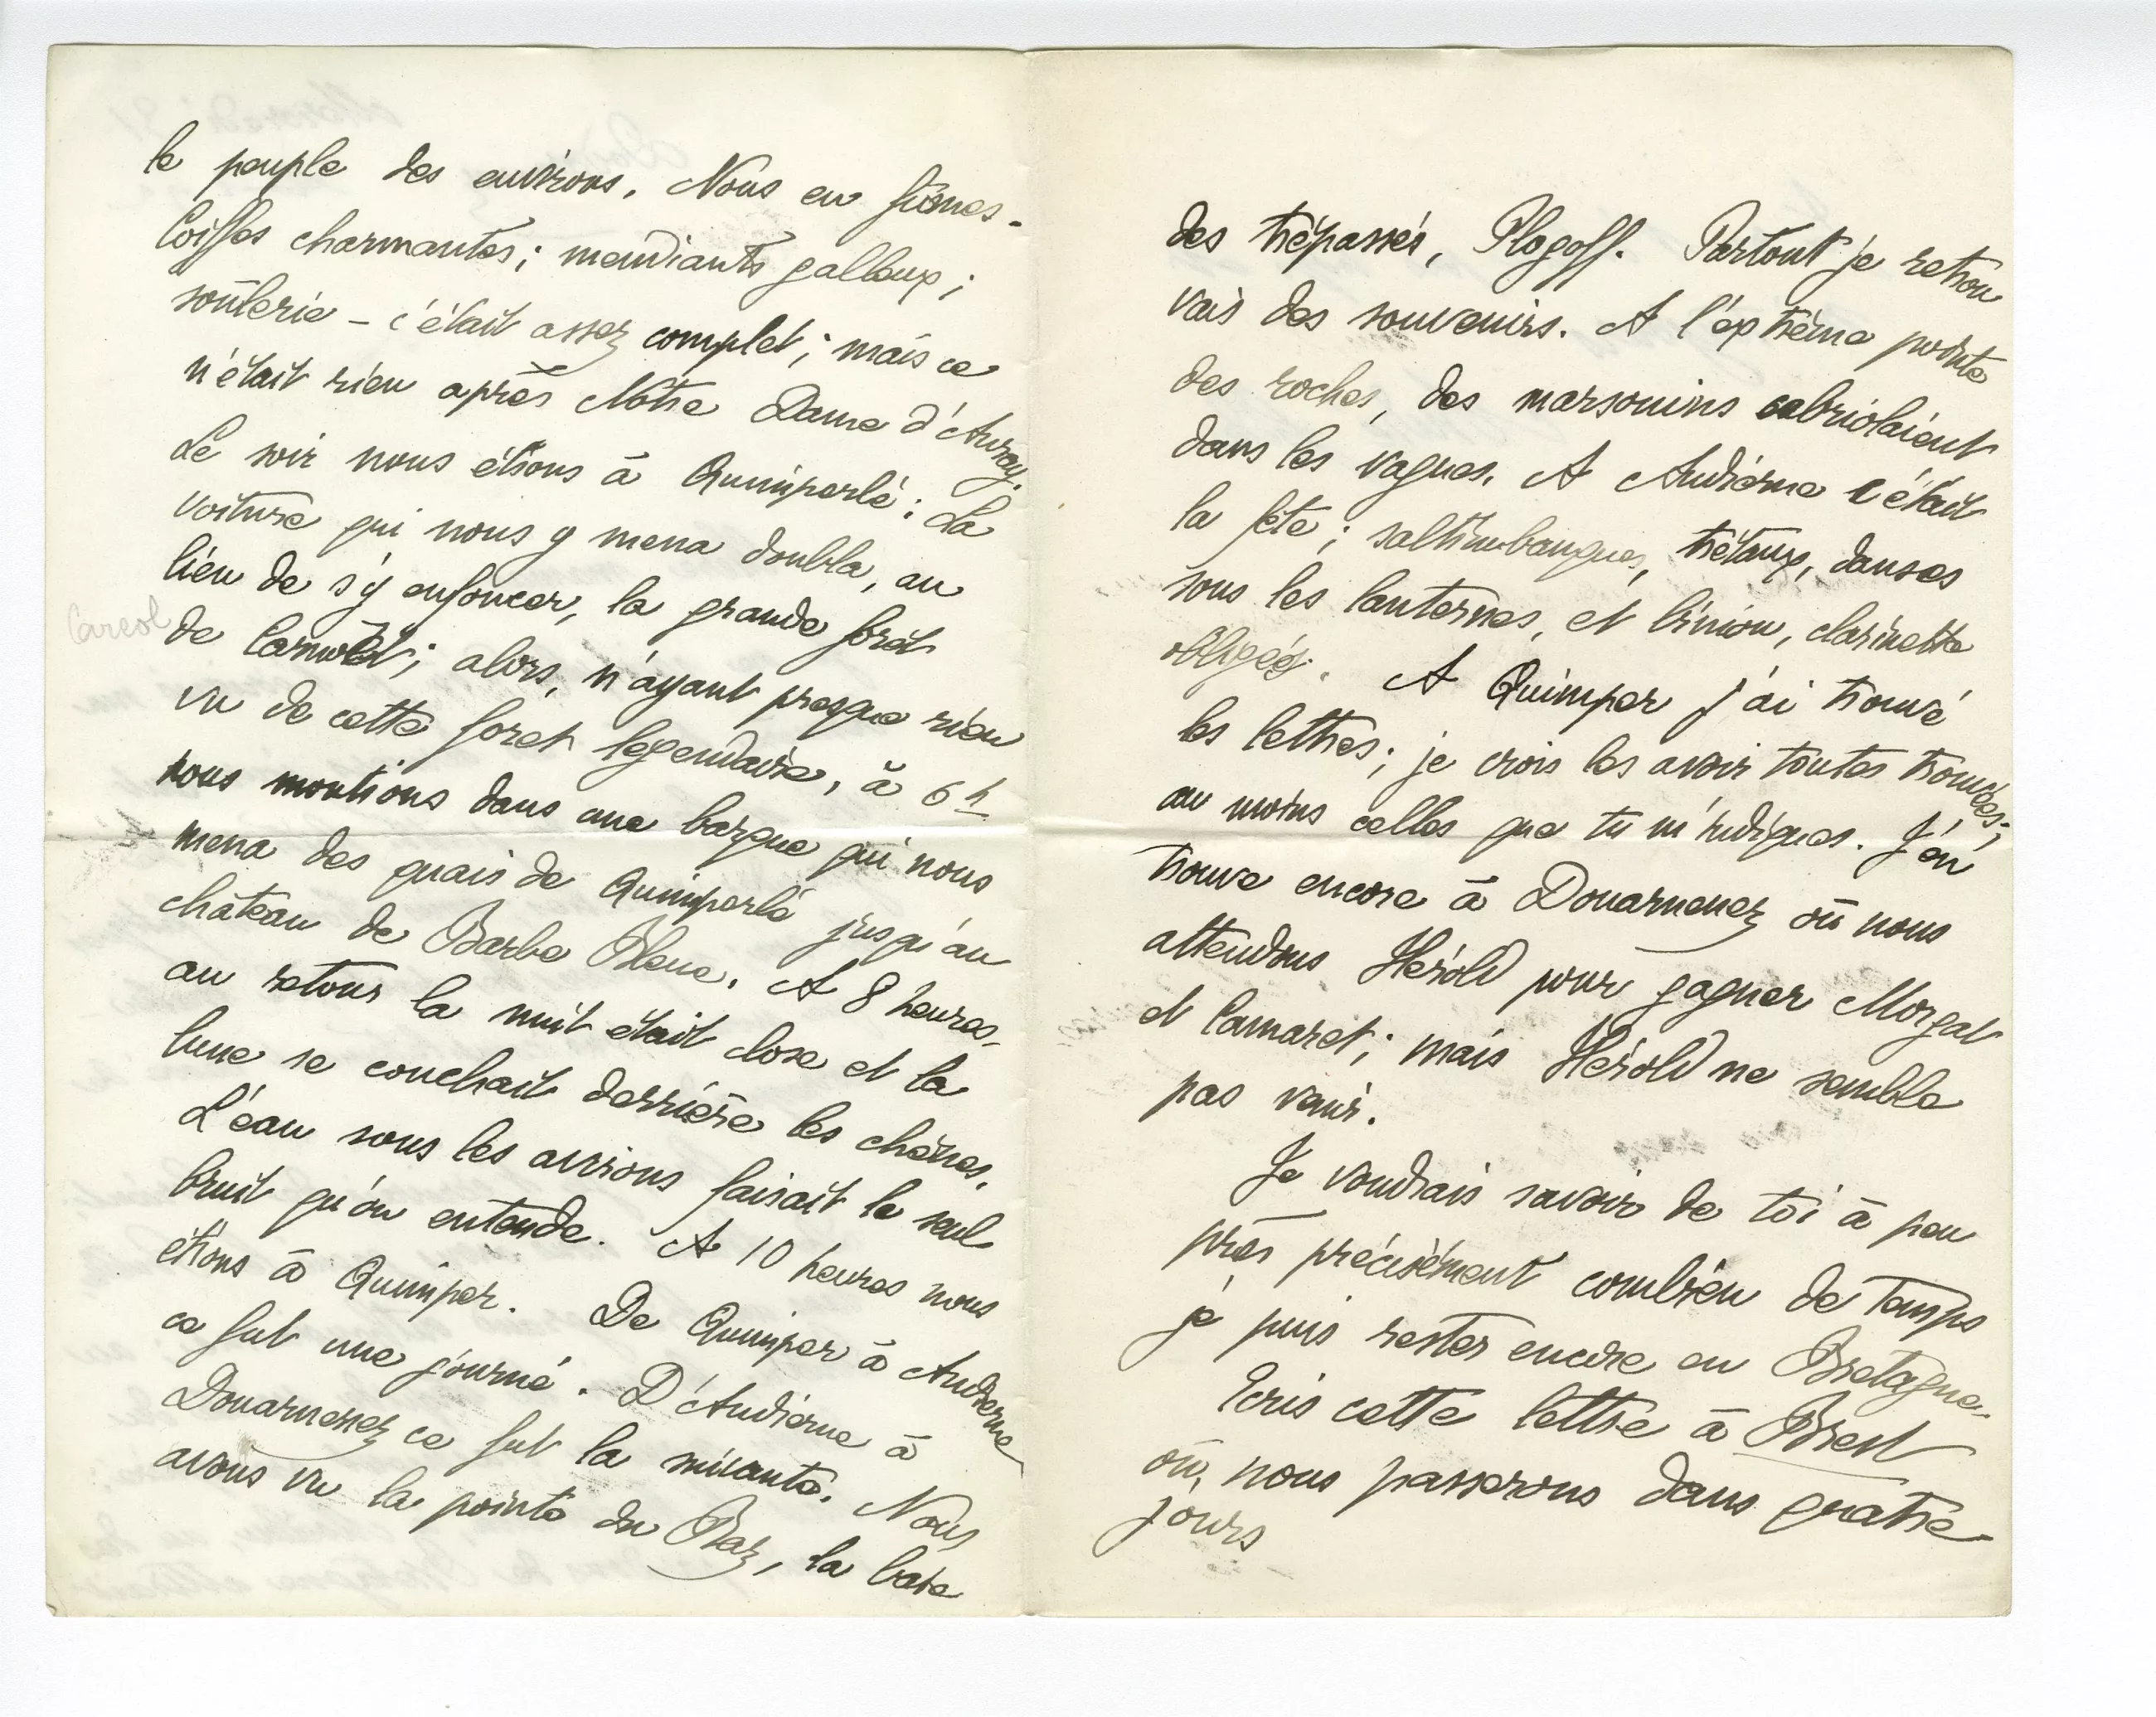 le peuple des environs. Nous en fûmes -
Coiffes charmantes ; mendiants galleux ;
soûlerie – c'était assez complet ; mais ce
n'était rien après Notre Dame d'Auray.
Le soir nous étions à Quimperlé ; La
voiture qui nous y mena doubla, au
lieu de s'y enfoncer, la grande forêt
de Carnoët ; alors, n'ayant presque rien
vu de cette foret légendaire, à 6 h
nous montions dans une barque qui nous
mena des quais de Quimperlé jusqu'au
château de Barbe Bleue. A 8 heures,
au retour la nuit était close et la
lune se couchait derrière les chênes.
L'eau sous les avirons faisait le seul
bruit qu'on entende. A 10 heures nous
étions à Quimper. De Quimper à Audierne
ce fut une journé. D'Audierne à
Douarnenez ce fut la suivante. Nous
avons vu la pointe du Raz, la baie
des trépassés, Plogoff. Partout je retrou
vais des souvenirs. A l'extrême pointe
des roches, des marsouins cabriolaient
dans les vagues. A Audierne c'était
la fête ; saltimbanques, trétaux, danses
sous les lanternes, et binion, clarinette
obligés. A Quimper j'ai trouvé
les lettres ; je crois les avoir toutes trouvées ;
au moins celles que tu m'indiques. J'en
trouve encore à Douarnenez où nous
attendons Hérold pour gagner Morgat
et Camaret ; mais Hérold ne semble
pas venir.
Je voudrais savoir de toi à peu
près précisément combien de temps
je puis rester encore en Bretagne.
Ecris cette lettre à Brest
où nous passerons dans quatre
jours